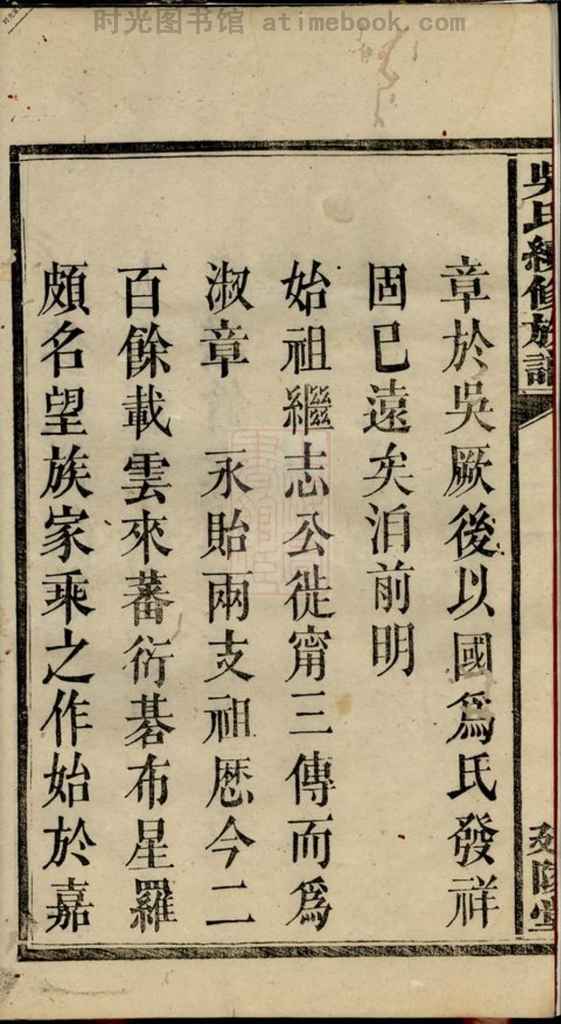 时光图书馆 atimebook.com
吳氏續修族譜
章於吳厥後以國爲氏發祥
固已遠矣洎前明
始祖繼志公徙甯三傳而爲
淑章 永貽兩支祖厯今二
百餘載雲來蕃衍碁布星羅
頗名望族家乘之作始於嘉
延陵堂